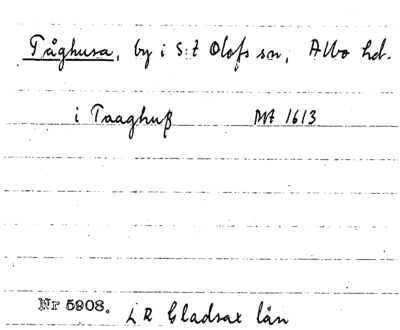 Tåghusa, by i S:t Olofs sn, Albo hd.
i Taaghuß MT 1613
Nr 5908. LR Gladsax län